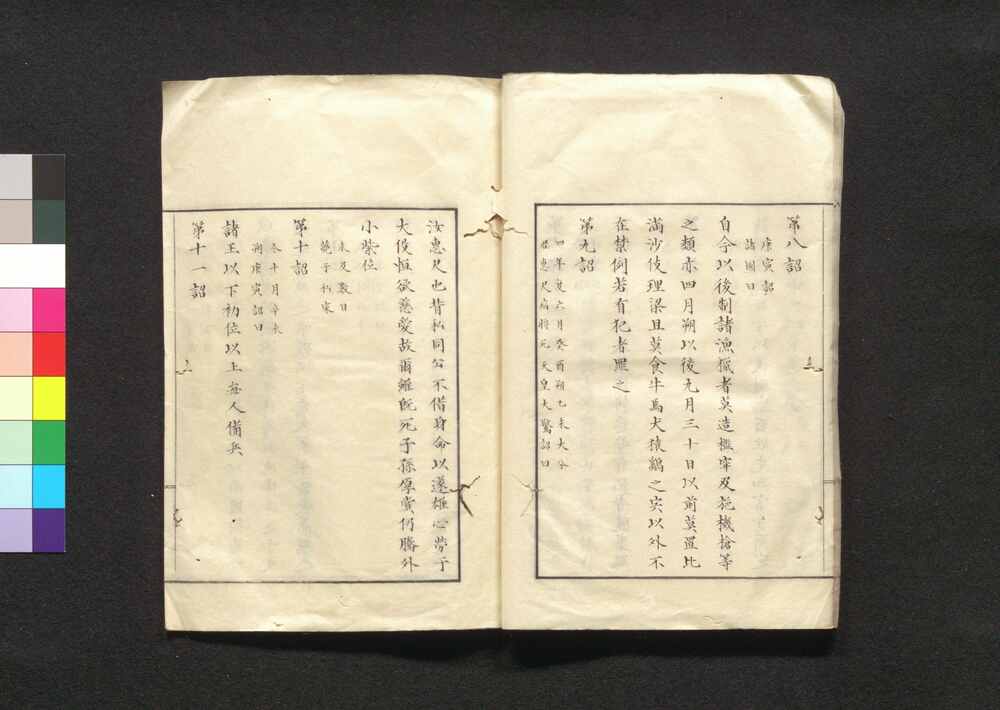 第八詔
庚寅詔
諸國曰
自今以後制諸漁獵者莫造檻穽及施機槍等
之類亦四月朔以後九月三十日以前莫置比
滿沙伎理梁且莫食牛馬犬猿鷄之宍以外不
在禁例若有犯者罪之
第九詔
四年夏六月癸酉朔乙未大分
君惠尺病將死天皇大驚詔曰
汝惠尺也背私向公不惜身命以遂雄心勞于
大役恒欲慈愛故爾雖既死子孫厚賞仍騰外
小紫位
未及數日
薨于私家
第十詔
冬十月辛未
朔庚寅詔曰
諸王以下初位以上每人備兵
第十一詔